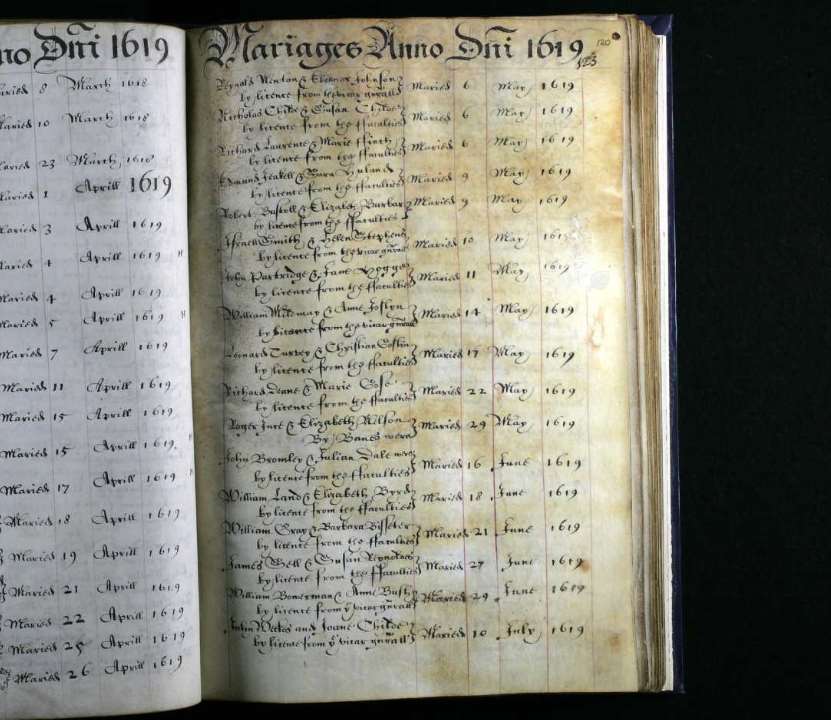 no Dn̄i 1619
Maried 8 March 1618
Maried 10 March 1618
Maried 23 March 1618
Maried 1 Aprill 1619
Maried 3 Aprill 1619
Maried 4 Aprill 1619
Maried 4 Aprill 1619
Maried 5 Aprill 1619
Maried 7 Aprill 1619
Maried 11 Aprill 1619
Maried 15 Aprill 1619
Maried 15 Aprill 1619
Maried 17 Aprill 1619
Maried 18 Aprill 1619
Maried 19 Aprill 1619
Maried 21 Aprill 1619
Maried 22 Aprill 1619
Maried 25 Aprill 1619
Maried 26 Aprill 1619
Mariages Anno Dn̄i 1619
120
123
Reynold Newton & Elleanor Johnson Maried 6 May 1619
by licence from the vicar gn̄rall
Nicholas Childe & Susan Childe Maried 6 May 1619
by licence from the ffaculties
Richard Laurence & Marie ffinch Maried 6 May 1619
by licence from the ffaculties
Edmund & Maried 9 May 1619
by licence from the ffaculties
Robert & Elizabeth Maried 9 May 1619
by licence from the ffaculties
Smith & Helen Stephens Maried 10 May 1619
by licence from the vicar gn̄rall
John Partridge & Jane Maried 11 May 1619
by licence from the ffaculties
William Mildmay & Anne Joslyn Maried 14 May 1619
by licence from the vicar gn̄rall
Leonard & Christian Maried 17 May 1619
by licence from the ffaculties
Richard Deane & Marie Maried 22 May 1619
by licence from the ffaculties
Roger & Elizabeth Wilson Maried 29 May 1619
By Banes were
John Bromley & Julian Dale were Maried 16 June 1619
by licence from the ffaculties
William Land & Elizabeth Byrd Maried 18 June 1619
by licence from the ffaculties
William Gray & Barbara Maried 21 June 1619
by licence from the ffaculties
James Bell & Susan Reynoldes Maried 27 June 1619
by licence from the ffaculties
William & Anne Bush Maried 29 June 1619
by licence from yͤ vicar gn̄rall
Weekes and Joane Childe Maried 10 July 1619
by licence from yͤ vicar gn̄rall